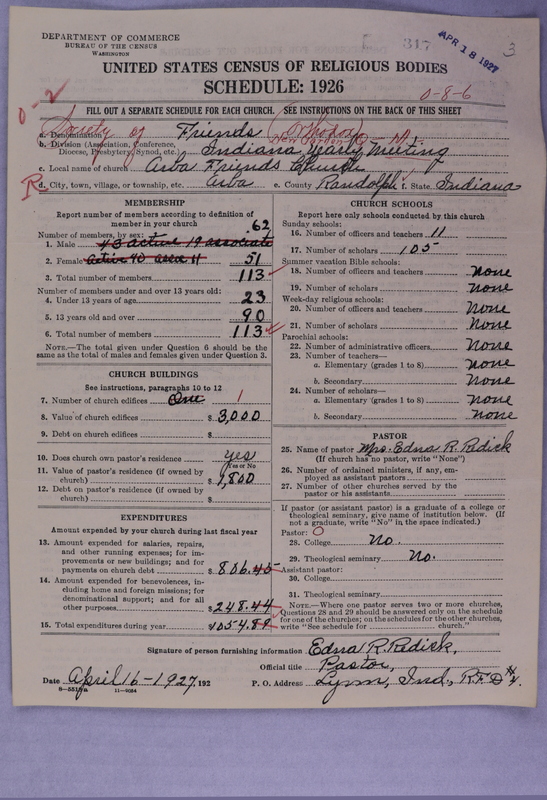 DEPARTMENT OF COMMERCE
BUREAU OF THE CENSUS
WASHINGTON
317
APR 18 1927
3
UNITED STATES CENSUS OF RELIGIOUS BODIES
SCHEDULE: 1926
0-8-6
0-2
FILL OUT A SEPARATE SCHEDULE FOR EACH CHURCH. (SEE INSTRUCTIONS ON THE BACK OF THIS SHEET
a. Denomination Society of Friends (Orthodox)
b. Division (Association, Conference, Diocese, Presbytery, Synod, etc.) Indiana Yearly Meeting
c. Local name of church Arba Friends Church
R d. City, town, village, or township, etc. Arba e. County Randolph f. State Indiana
MEMBERSHIP
Report number of members according to definition of member in your church
Number of members, by sex:
1. Male 43 active 19 associate 62
2. Female active 40 asso 11 51
3. Total number of members 113
Number of members under and over 13 years old:
4. Under 13 years of age 23
5. 13 years old and over 90
6. Total number of members 113
NOTE.—The total given under Question 6 should be the same as the total of males and females given under Question 3.
CHURCH BUILDINGS
See instructions, paragraphs 10 to 12
7. Number of church edifices One 1
8. Value of church edifices $ 3,000
9. Debt on church edifices $
10. Does church own pastor's residence yes
Yes or No
11. Value of pastor's residence (if owned by church) $ 1,800
12. Debt on pastor's residence (if owned by church) $
EXPENDITURES
Amount expended by your church during last fiscal year
13. Amount expended for salaries, repairs, and other running expenses; for improvements or new buildings; and for payments on church debt $ 806.45
14. Amount expended for benevolences, including home and foreign missions; for denominational support; and for all other purposes $ 248.44
15. Total expenditures during year $1054.89
CHURCH SCHOOLS
Report here only schools conducted by this church
Sunday schools:
16. Number of officers and teachers 11
17. Number of scholars 105
Summer vacation Bible schools:
18. Number of officers and teachers None
19. Number of scholars None
Week-day religious schools:
20. Number of officers and teachers None
21. Number of scholars None
Parochial schools:
22. Number of administrative officers None
23. Number of teachers—
a. Elementary (grades 1 to 8) None
b. Secondary None
24. Number of scholars—
a. Elementary (grades 1 to 8) None
b. Secondary None
PASTOR
25. Name of pastor Mrs. Edna R. Redick
(If church has no pastor, write "None")
26. Number of ordained ministers, if any, employed as assistant pastors
27. Number of other churches served by the pastor or his assistants
If pastor (or assistant pastor) is a graduate of a college or theological seminary, give name of institution below. (If not a graduate, write "No" in the space indicated.)
Pastor: O
28. College No.
29. Theological seminary No.
Assistant pastor:
30. College
31. Theological seminary
NOTE.—Where one pastor serves two or more churches, Questions 28 and 29 should be answered only on the schedule for one of the churches; on the schedules for the other churches, write "See schedule for church."
Signature of person furnishing information Edna R. Redick,
Official title Pastor,
Date April 16-1927, 192
P. O. Address Lynn, Ind., R.F.D #4.
8-551ya 11-9084